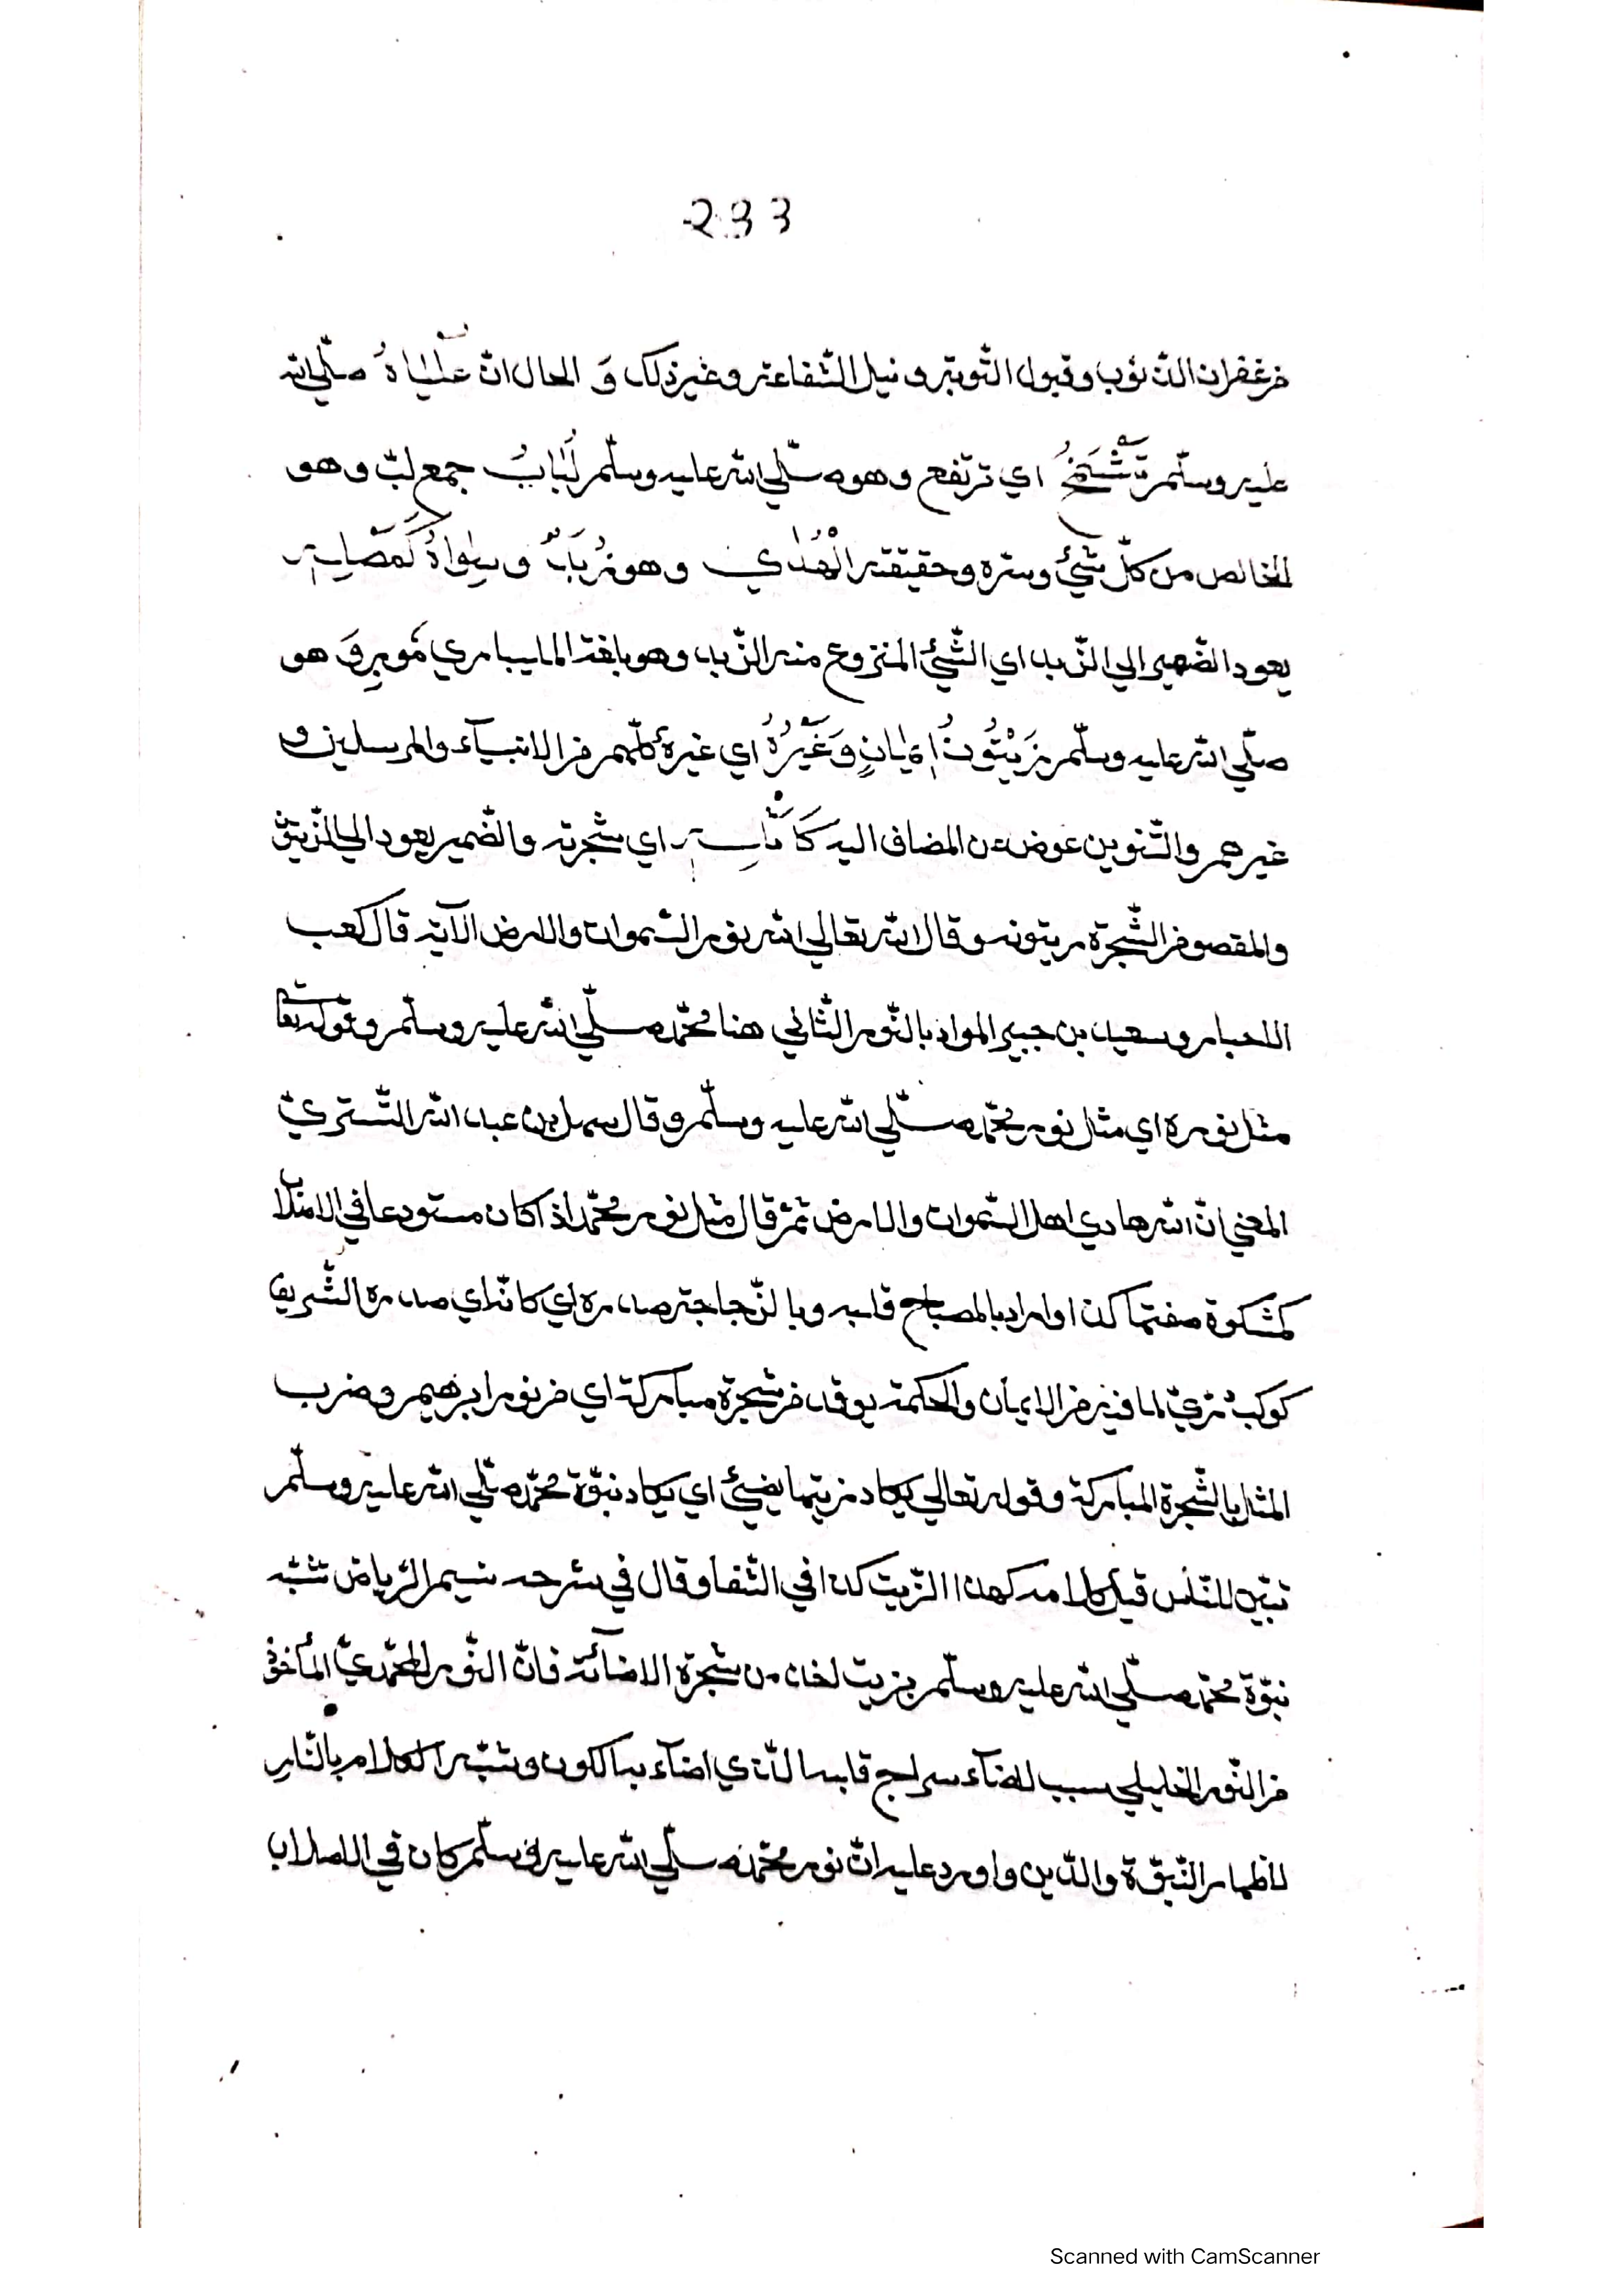 233
من غفران الذّنوب وقبول التّوبة ونيل الشّفاعة وغير ذلك وَ الحال انّ عَلْيَاهُ صلّي الله
عليه وسلّم تَشْمَخُ اي ترتفع وهو صلّي الله عليه وسلّم لُبَابُ جمع لبّ وهو
الخالص من كلّ شئ وسرّه وحقيقته الْهُدٰي وهو زُبَابٌ وسِوَاهُ كَمَصْلِهِ
يعود الضّمير الي الزّبد اي الشّئ المنزوع منه الزّبد وهو بلغة المليباري مُوبِرِ وَ هو
صلّي الله عليه وسلّم زَيْتُونُ اِيمَانٍ وَغَيْرُهُ اي غيره كلّهم من الانبيآء والمرسلين و
غيرهم والتّنوين عوض عن المضاف اليه كَآسِهِ اي شجرته والضّمير يعود الي الزّيتون
والمقصو من الشّجرة زيتونه وقال الله تعالي الله نور السّموات والارض الآية قال كعب
الاحبار وسعيد بن جبير المراد بالنّور الثّاني هنا محمّد صلّي الله عليه وسلّم وقوله تعا
مثل نوره اي مثل نور محمّد صلّي الله عليه وسلّم وقال سهل بن عبد الله التّستريّ
المعني انّ الله هادي اهل السّموات والارض ثمّ قال مثل نور محمّد اذ كان مستودعا في الاصلاب
كمشكوة صفتها كذا واراد بالمصباح قلبه وبالزّجاجة صدره اي كانّه اي صدره الشّريف
كوكب درّيّ لما فيه من الايمان والحكمة يوقد من شجرة مباركة اي من نور ابرهيم وضرب
المثل بالشّجرة المباركة وقوله تعالي يكاد زيتها يضئ اي يكاد نبوّة محمّد صلّي الله عليه وسلّم
تبيّن للنّاس قبل كلامه كهذا الزّيت كذا في الشّفا وقال في شرحه نسيم الرّياض شبّه
نبوّة محمّد صلّي الله عليه وسلّم بزيت اخذ من شجرة الاضآئة فانّ النّور المحمّديّ المأخوذ
من النّور الخليلي سبب لاضآء سراج قلبه الّذي اضآء به الكون وشبّه الكلام بالنّارِ
لاظهار النّبوّة والدّين واورد عليه انّ نور محمّد صلّي الله عليه وسلّم كان في الاصلاب
Scanned with CamScanner